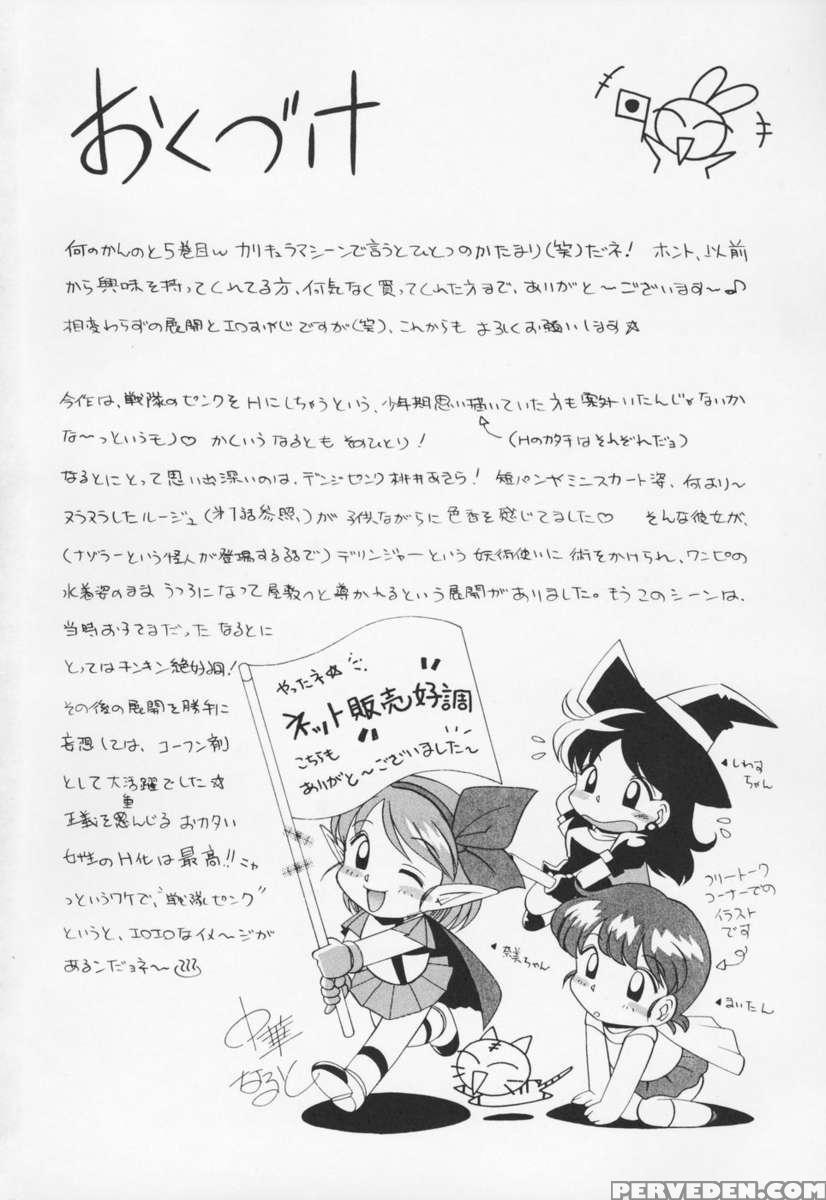 おくづけ
何のかんのと5巻目w カリキュラマシーンで言うとひとつのかたまり(笑)だネ! ホント、以前
から興味を持ってくれてる方、何気なく買ってくれた方まで、ありがと〜ございます〜♪
相変わらずの展開とエロすかじですが(笑)、これからも よろしくお願いします☆
今作は、戦隊のピンクをHにしちゃうという、少年期思い描いていた方も案外いたんじゃないか
な〜っというモノ♡ かくいうなるとも そのひとり!
(Hのカタチはそれぞれだョ)
なるとにとって思い出深いのは、デンジピンク桃井あきら! 短パンやミニスカート姿、何より〜
ヌラヌラしたルージュ(第1話参照、)が子供ながらに色香を感じてました♡ そんな彼女が、
(ナゾラーという怪人が登場する話で)デリンジャーという妖術使いに術をかけられ、ワンピの
水着姿のまま うつろになって屋敷へと導かれるという展開がありました。もうこのシーンは、
当時お子てまだった なるとに
とってはチンキン絶好調!
その後の展開を勝手に
妄想しては、コーフン剤
として大活躍でした☆
重
正義を思んじる おカタい
女性のH化は最高!!ニャ
っというワケで、"戦隊ピンク"
というと、エロエロなイメ〜ジが
あるンだョネ〜
やったネ☆
ネット販売好調
こちらも
ありがと〜ございました〜
しわすちゃん
フリートーク
コーナーでの
イラスト
です
奈美ちゃん
まいたん
中華
なると
PERVEDEN.COM